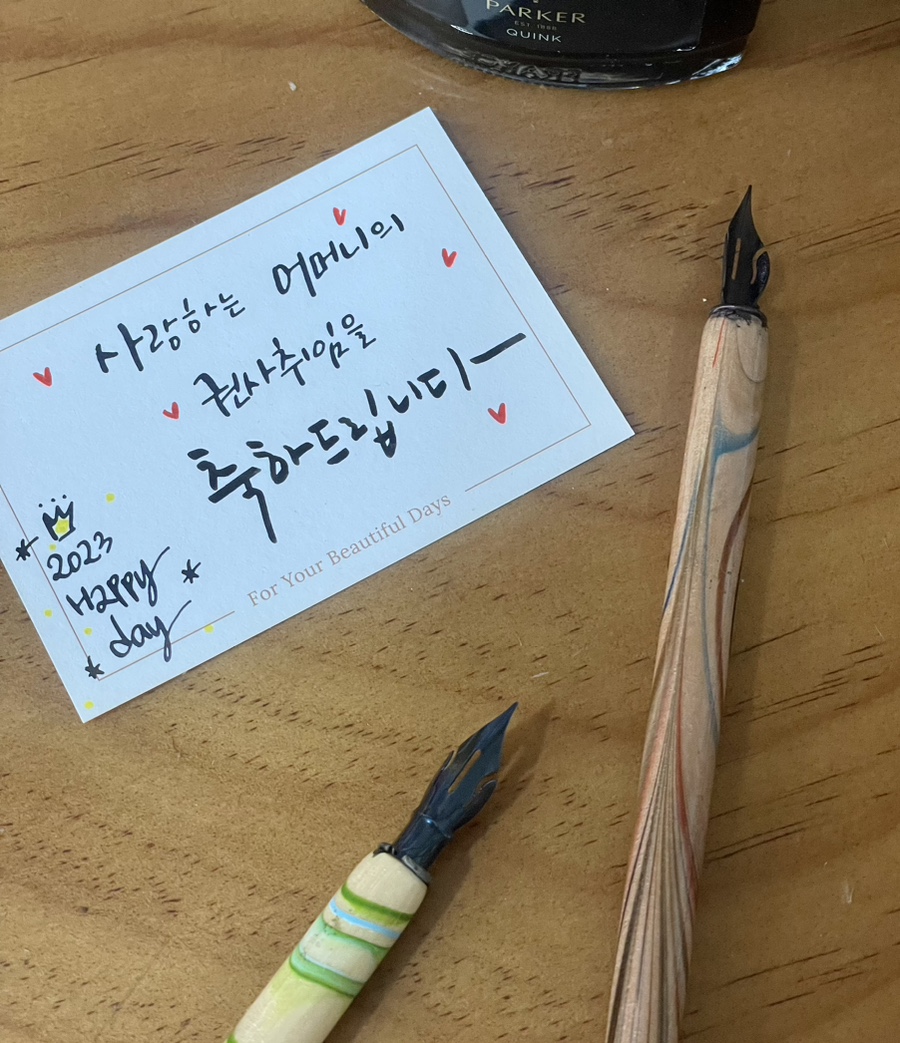 PARKER
EST 1888
QUINK
사랑하는 어머니의
권사취임을
축하드립니다
For Your Beautiful Days
2023
Happy
day